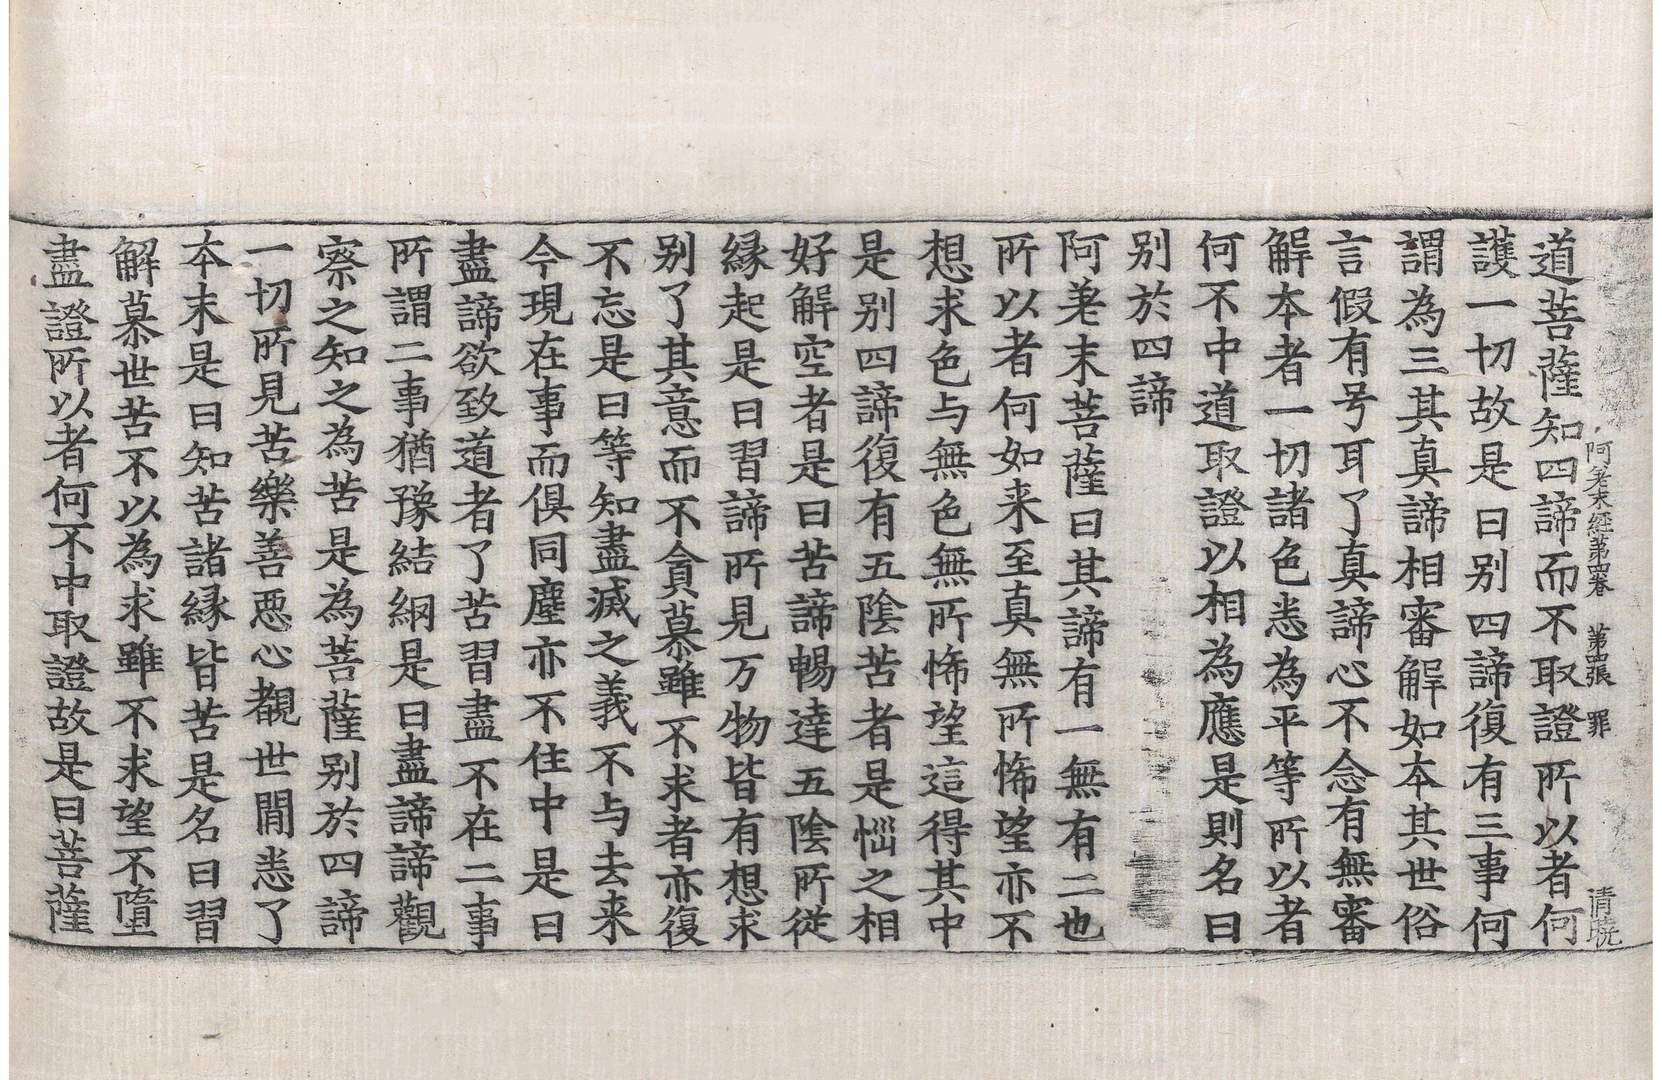 阿差末經第四卷　第四張　罪
道菩薩知四諦而不取證所以者何
護一切故是曰別四諦復有三事何
謂為三其真諦相審解如本其世俗
言假有号耳了真諦心不念有無審
解本者一切諸色悉為平等所以者
何不中道取證以相為應是則名曰
别於四諦
阿差末菩薩曰其諦有一無有二也
所以者何如来至真無所悕望亦不
想求色与無色無所悕望這得其中
是别四諦復有五陰苦者是惱之相
好解空者是曰苦諦暢達五陰所從
緣起是曰習諦所見万物皆有想求
别了其意而不貪慕雖不求者亦復
不忘是曰等知盡滅之義不与去来
今現在事而俱同塵亦不住中是曰
盡諦欲致道者了苦習盡不在二事
所謂二事猶豫結網是曰盡諦諦觀
察之知之為苦是為菩薩別於四諦
一切所見苦樂善惡心覩世間悉了
本末是曰知苦諸緣皆苦是名曰習
解慕世苦不以為求雖不求望不墮
盡證所以者何不中取證故是曰菩薩